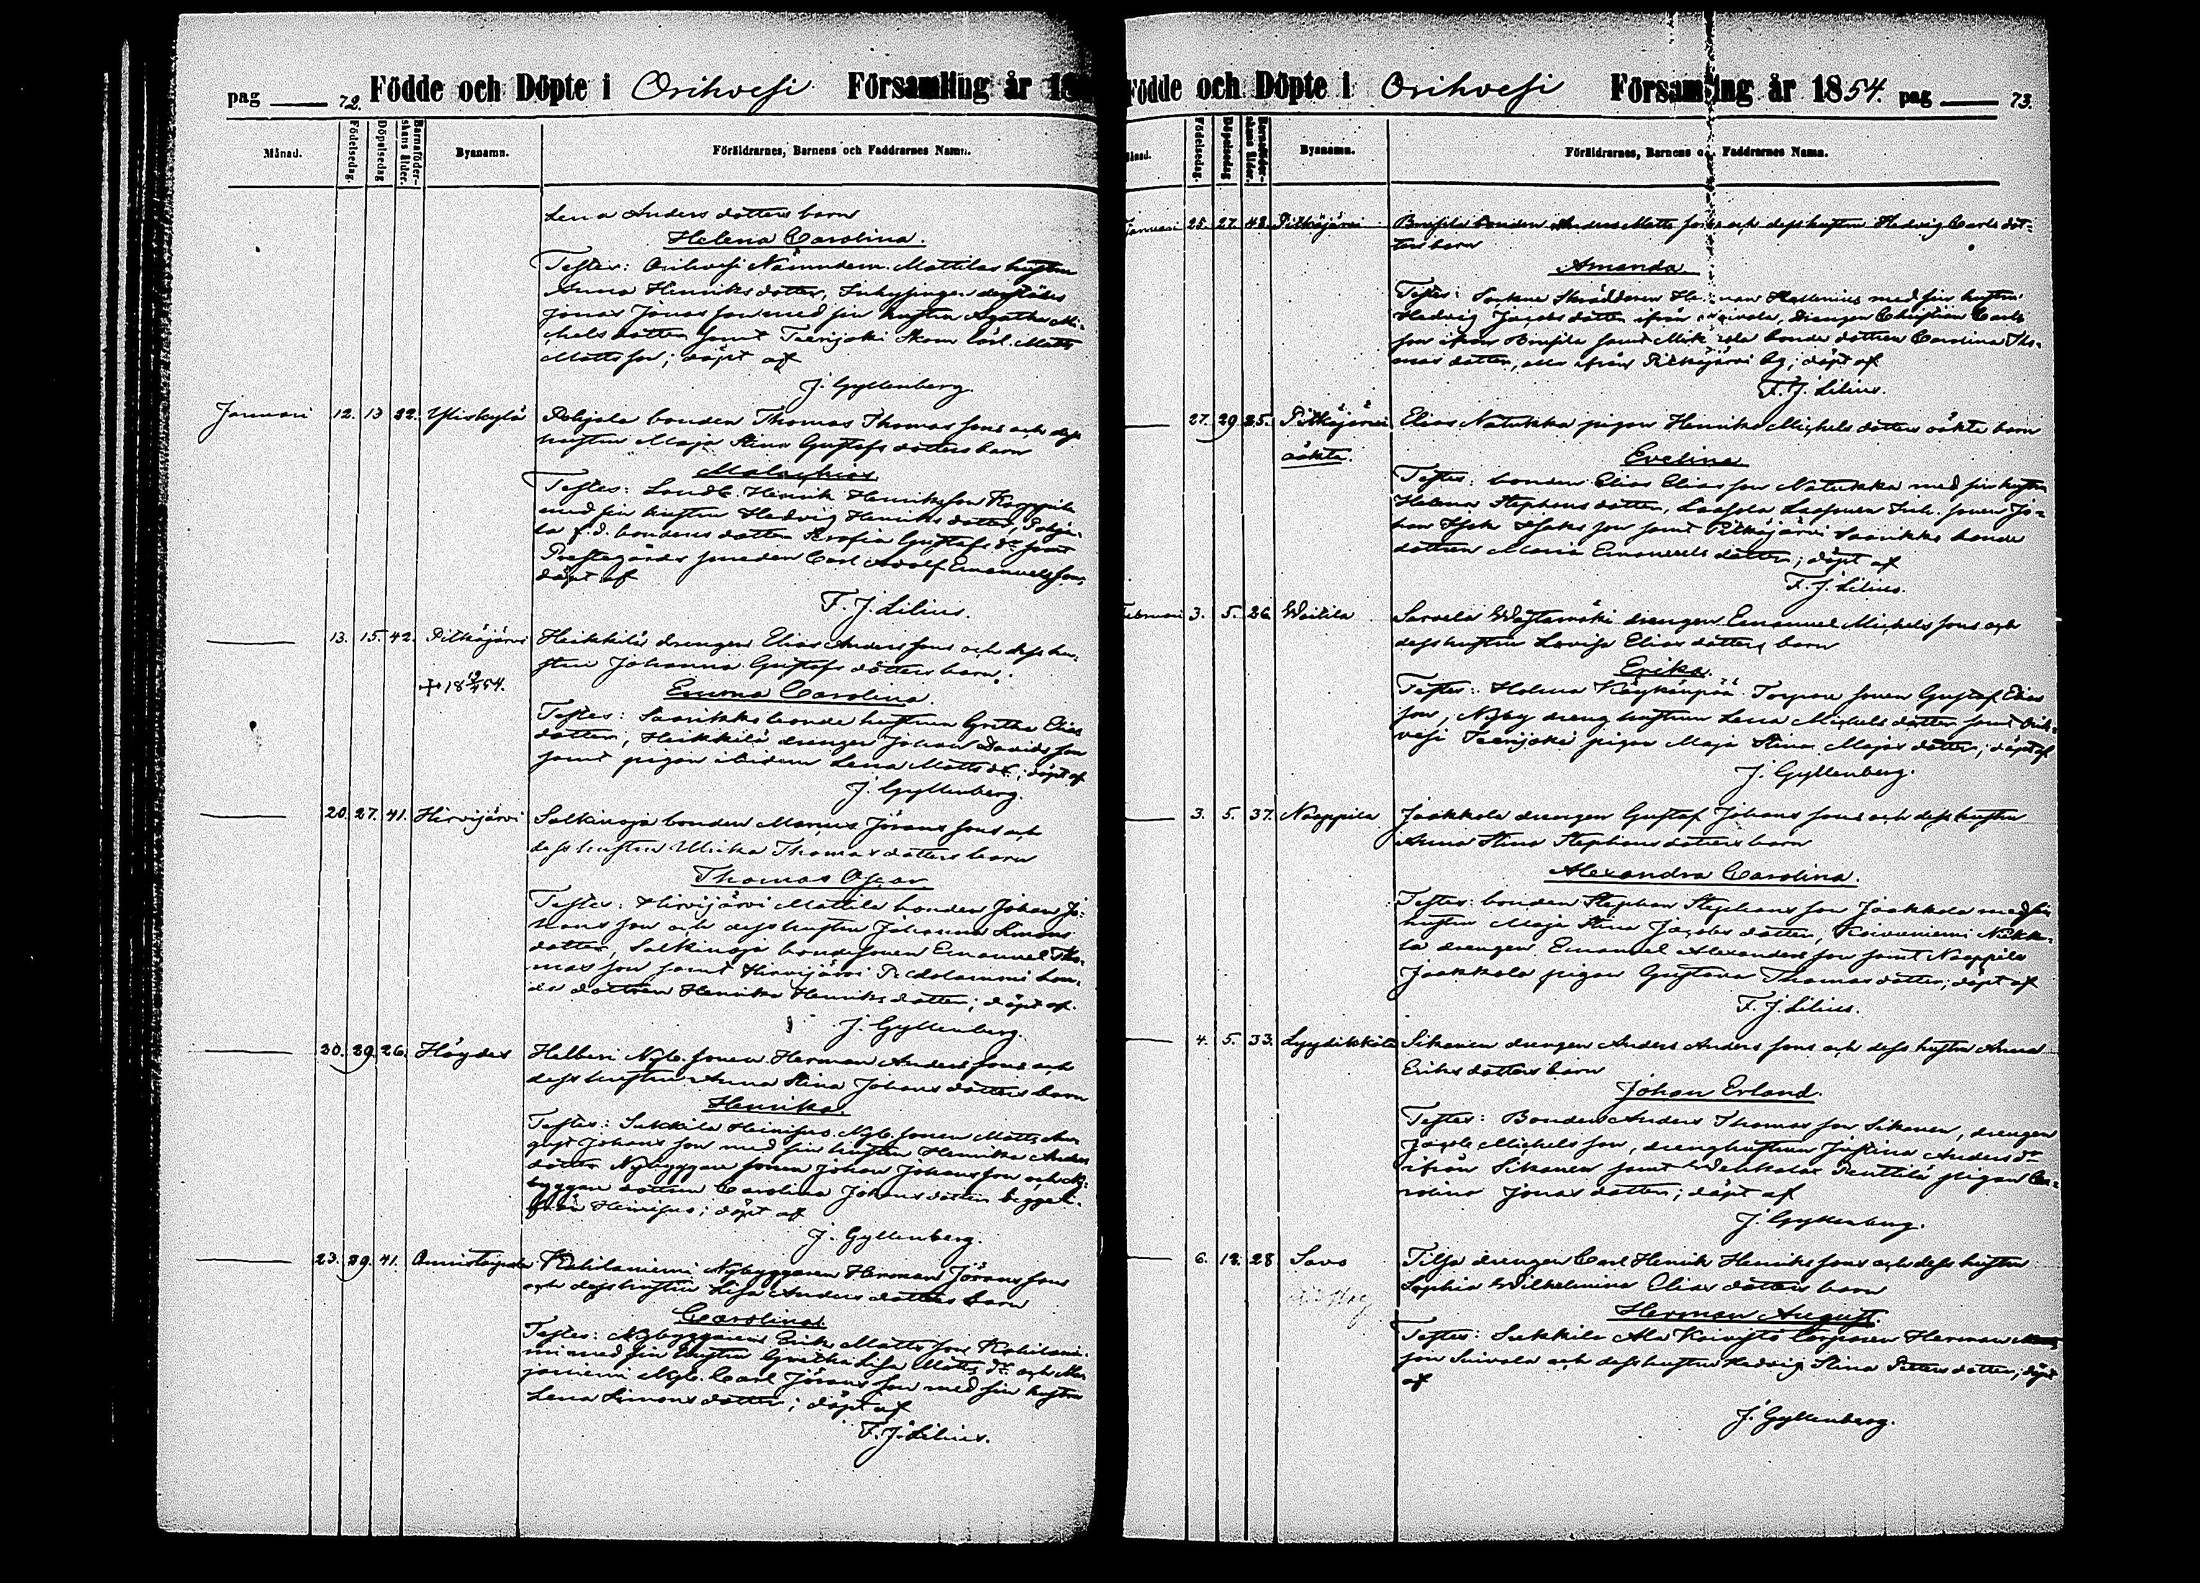 pag 72. Födde och Döpte i Orihvesi Församling år 18
Månad. Födelsedag. Döpelsedag Barnaföderskans ålder. Bynamn. Föräldrarnes, Barnens och Faddrarnes Namn.
Lena Anders dotters barn
Helena Carolina.
Testes: Orihvesi Nämndem. Mattilas hustru
Anna Henriks dotter, Inhysingen
Jonas Jonas son med sin hustru Agatha Mi-
chels dotter samt Teerijoki Skom. lärl. Matts
Matts son; döpt af
J. Gyllenberg.
Januari 12. 13 22. Yliskylä Pohjala bonden Thomas Thomas sons och dess
hustru Maja Stina Gustafs dotters barn
Malachias
Testes: Landb. Henrik Henriksson Kroppila
med sin hustru Hedvig Henriks dotter, Pohja-
la f.d. bondens dotter Sofia Gustafs dr samt
Prestegårds smeden Carl Adolf Emanuelsson,
döpt af
F. J. Lilius.
13. 15. 42. Pitkäjärvi Heikkilä drengen Elias Anders sons och dess hu-
stru Johanna Gustafs dotters barn.
+ 18 12/4 54.
Emma Carolina.
Testes: Saarikko bonde hustrun Gretha Elias
dotter, Heikkilä drengen Johan Davids son
samt pigan ibidem Lena Matts dr; döpt af
J. Gyllenberg.
20. 27. 41. Hirvijärvi Salkinoja bonden Marcus Jörans sons och
dess hustru Ulrika Thomas dotters barn
Thomas Oscar
Testes: Hirvijärvi Mattila bonden Johan Jo-
hans son och dess hustru Johanna Simons
dotter, Salkinoja bondesonen Emanuel Tho-
mas son samt Hirvijärvi bon-
de dottren Henrika Henriks dotter; döpt af
J. Gyllenberg.
20. 29. 26. Höydes Helberi Nyb. sonen Herman Anders sons och
dess hustru Anna Stina Johans dotters barn
Henrika.
Testes: Sukkila Heinijus Nyb. sonen Matts Au-
gust Johans son med sin hustru Henrika Anders
dotter Nybyggare sonen Johan Johans son och Ny-
byggare dottren Carolina Johans dotter begge i-
från Heinijus; döpt af
J. Gyllenberg.
23. 29. 41. Onnistaipale Kahilaniemi Nybyggaren Herman Jörans sons
och dess hustru Lisa Anders dotters barn
Carolina
Testes: Nybyggaren Erik Matts son Kahilanie-
mi med sin hustru Gretha Lisa Matts dr och
Nyb. Carl Jörans son med sin hustru
Lena Simons dotter; döpt af
F. J. Lilius.
Födde och Döpte i Orihvesi Församling år 1854. pag 73.
Födelsedag. Döpelsedag Barnaföderskans ålder. Bynamn. Föräldrarnes, Barnens och Faddrarnes Namn.
Januari 25. 27. 43. Pitkäjärvi Brusila bonden Anders Matts sons och dess hustru Hedvig Carls dot-
ters barn
Amanda.
Testes: Sockne Skräddaren Herman Hellenius med sin hustru
Hedvig Jacobs dotter ifrån, drengen Christian Carls
son ifrån Brusila samt bonde dottren Carolina Tho-
mas dotter, alla ifrån Pitkäjärvi by; döpt af
F. J. Lilius.
27. 29. 25. Pitkäjärvi Elias Natukka pigan Henrika Michels dotters oäkta barn
oäkta.
Evelina
Testes: bonden Elias Elias son Natukka med sin hustru
Helena Stephans dotter, Laasola Laasonen Inh. sonen Jo-
han Isak Isaks son samt Pitkäjärvi Saarikko bonde
dottren Maria Emanuels dotter; döpt af
F. J. Lilius.
Februari 3. 5. 26. Weitila Sarvela drengen Emanuel Michels sons och
dess hustru Lovisa Elias dotters barn
Erika.
Testes: Holma Köykänpää Torpare sonen Gustaf Elias
son, Nyby dreng hustrun Lena Michels dotter samt Orih-
vesi Teerijoki pigan Maja Stina Majas dotter; döpt af
J. Gyllenberg.
3. 5. 37. Naappila Jaakkola drengen Gustaf Johans sons och dess hustru
Anna Stina Stephans dotters barn
Alexandra Carolina.
Testes: bonden Stephan Stephans son Jaakkola med sin
hustru Maja Stina Jacobs dotter, Koivuniemi Nikki-
la drengen Emanuel Alexanders son samt Naappila
Jaakkola pigan Gustava Thomas dotter; döpt af
F. J. Lilius.
4. 5. 33. Lyydikkälä Sikanen drengen Anders Anders sons och dess hustru Anna
Eriks dotters barn
Johan Erland.
Testes: Bonden Anders Thomas son Sikanen, drengen
Jacob Michels son, dreng hustrun Justina Anders dr
ifrån Sikanen samt Wehkalax Penttilä pigan Ca-
rolina Jonas dotter; döpt af
J. Gyllenberg.
6. 12. 28 Savo Tilsa drengen Carl Henrik Henriks sons och dess hustru
Sophia Wilhelmina Elias dotters barn
Herman August.
Testes: Sukkila Ala Koivisto torparen Herman
son Suivala och dess hustru Hedvig Stina Petters dotter; döpt
af
J. Gyllenberg.